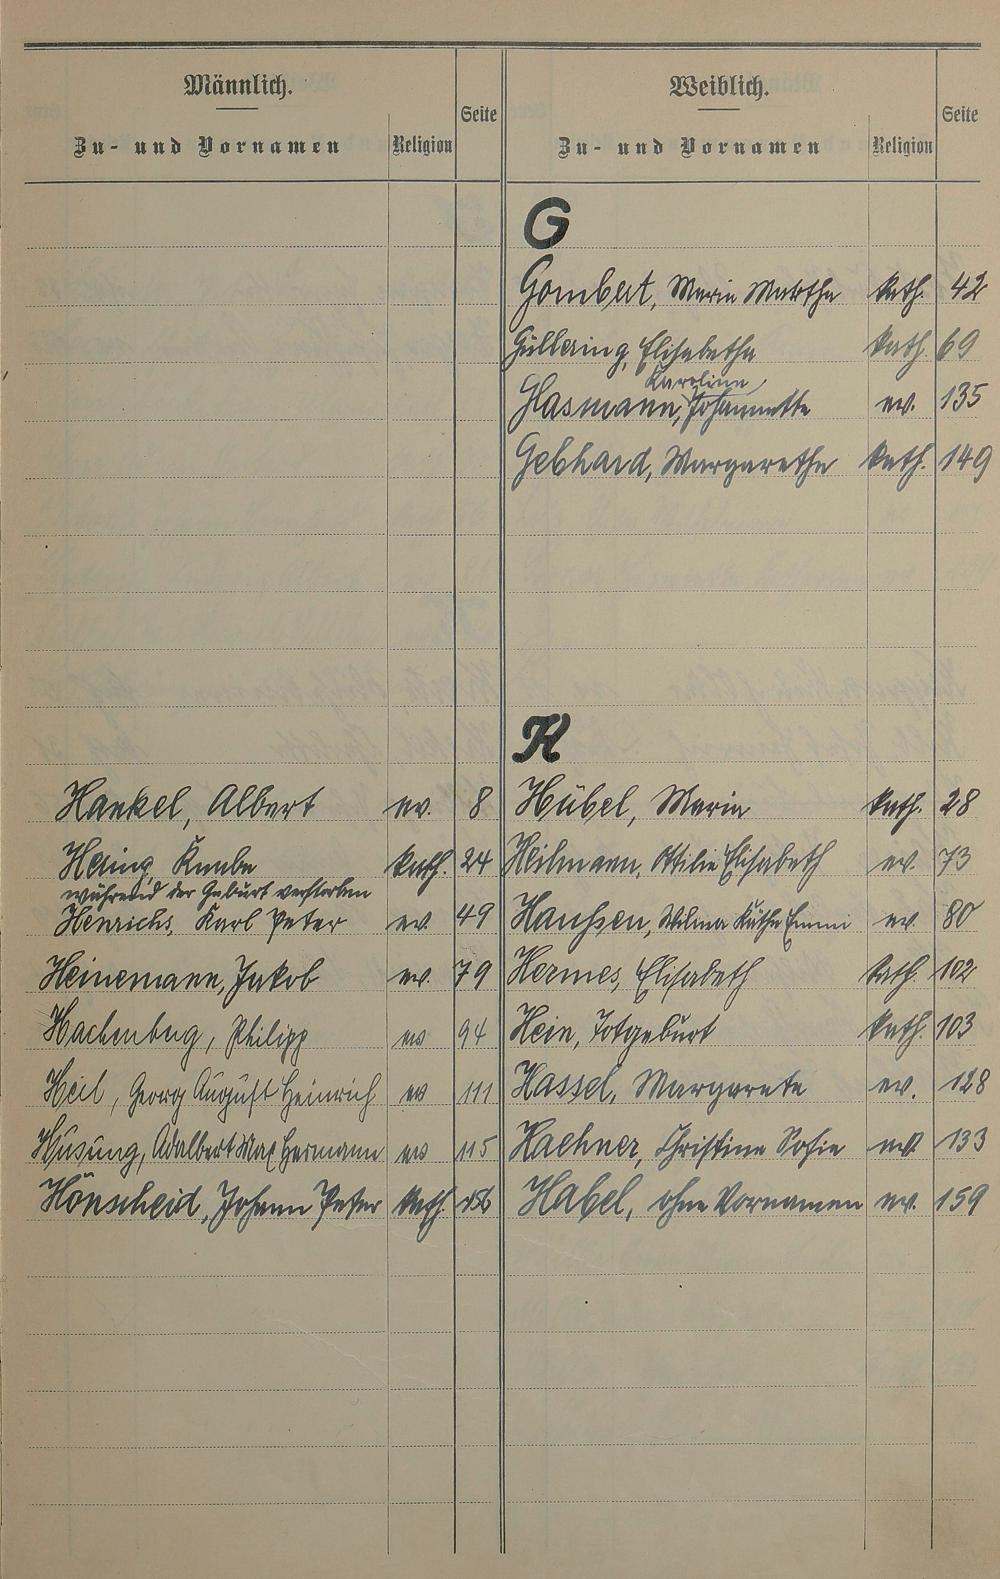 Männlich.
Zu- und Vornamen Religion Seite
Hankel, Albert ev. 8
Hering, Knabe kath. 24
während der Geburt verstorben
Henrichs, Karl Peter ev. 49
Heinemann, Jakob ev. 79
Hachenbug, Philipp ev 94
Heil, Georg August Heinrich ev 111
Hüsung, Adalbert Max Hermann ev 115
Hönscheid, Johann Peter kath. 156
Weiblich.
Zu- und Vornamen Religion Seite
G
Gombert, Maria Martha kath. 42
Güllering, Elisabetha kath. 69
Karoline,
Glasmann, Johannette ev. 135
Gebhard, Margaretha kath. 149
H
Hübel, Maria kath. 28
Heilmann, Ottilie Elisabeth ev. 73
Hanßen, Wilma Käthe Emmi ev. 80
Hermes, Elisabeth kath. 102
Hein, Totgeburt kath. 103
Hassel, Margarete ev. 128
Haehner, Christine Sofie ev. 133
Habel, ohne Vornamen ev. 159